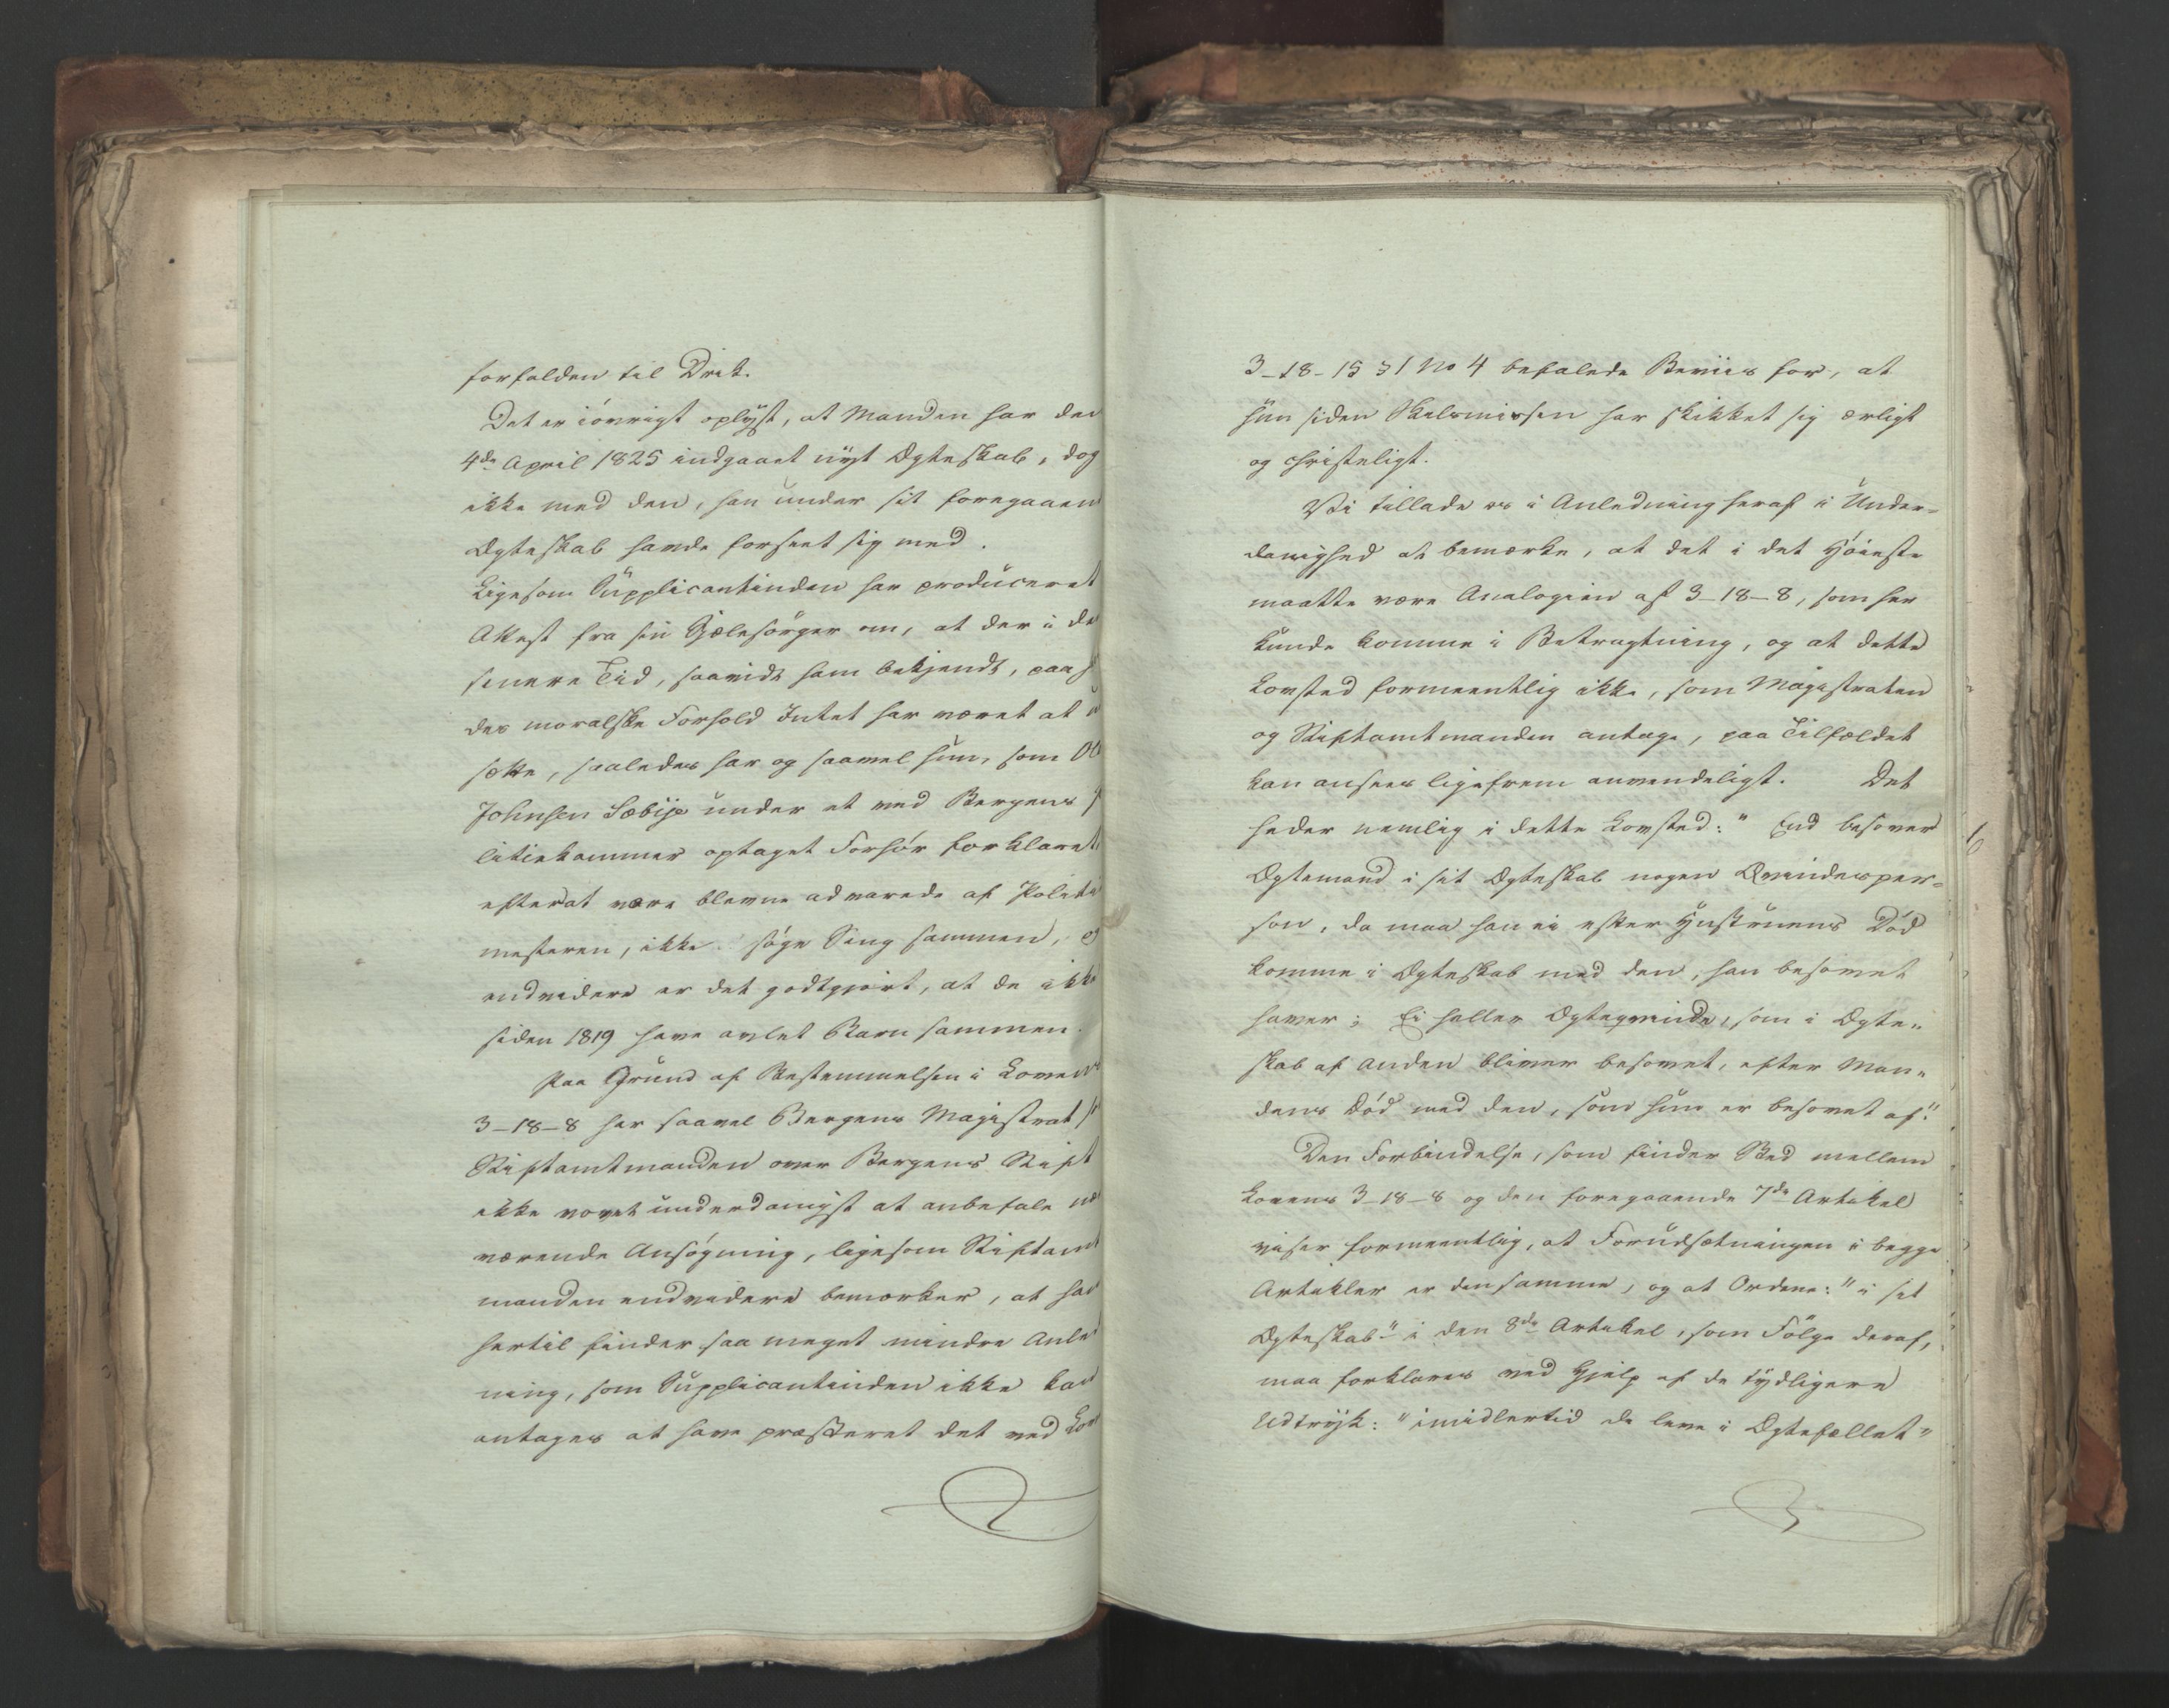 forfalden til Drik.
Det er iövrigt oplyst, at Manden har den
4de April 1825 indgaaet nyt Ægteskab, dog
ikke med den, han under sit foregaaen
Ægteskab havde forseet sig med.
Ligesom Supplicantinden har produceret
Attest fra sin Sjælesörger om, at der i de
senere Tid, saavidt ham bekjendt, paa h
des moralske Forhold Intet har været at u
sætte, saaledes har og saavel hun, som Ol
Johnsen Sæbije under et ved Bergens P
litiekammer optaget Forhör forklaret
efterat være blevne advarede af Politi
mesteren, ikke söge Seng sammen, og
endvidere er det godtgjort, at de ikke
siden 1819 have avlet Barn sammen.
Paa Grund af Bestemmelsen i Lovens
3-18-8 har saavel Bergens Magistrat s
Stiftamtmanden over Bergens Stift
ikke vovet underdanigst at anbefale næ
værende Ansögning, ligesom Stiftamt
manden endvidere bemærker, at han
hertil finder saa meget mindre Anled
ning, som Supplicantinden ikke kan
antages at have præsteret det ved Lov
3-18-15 § 1 No 4 befalede Beviis for, at
hun siden Skilsmissen har skikket sig ærligt
og christeligt.
Vi tillade os i Anledning heraf i Under-
danighed at bemærke, at det i det Höieste
maatte være Analogien af 3-18-8, som her
kunde komme i Betragtning, og at dette
Lovsted formeentlig ikke, som Magistraten
og Stiftamtmanden antage, paa Tilfældet
kan ansees ligefrem anvendeligt. Det
heder nemlig i dette Lovsted: "End besover
Ægtemand i sit Ægteskab nogen Qvindesper-
son, da maa han ei efter Hustruens Död
komme i Ægteskab med den, han besovet
haver; Ei heller Ægteqvinde, som i Ægte-
skab af Anden bliver besovet, efter Man-
dens Död med den, som hun er besovet af."
Den Forbindelse, som finder Sted mellem
Lovens 3-18-8 og den foregaaende 7de Artikel
viser formeentlig, at Forudsætningen i begge
Artikler er den samme, og at Ordene: "i sit
Ægteskab" i den 8de Artikel, som Fölge deraf,
maa forklares ved Hjelp af de tydligere
Udtryk: "imidlertid de leve i Ægtefællet"